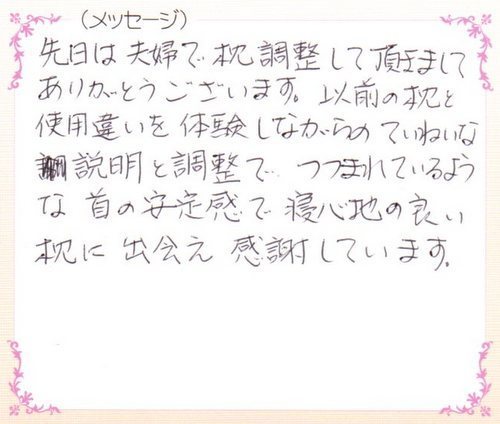 (メッセージ)
先日は夫婦で枕調整して頂きまして
ありがとうございます。以前の枕と
使用違いを体験しながらのていねいな
説明と調整で つつまれているよう
な首の安定感で寝心地の良い
枕に出会え感謝しています。